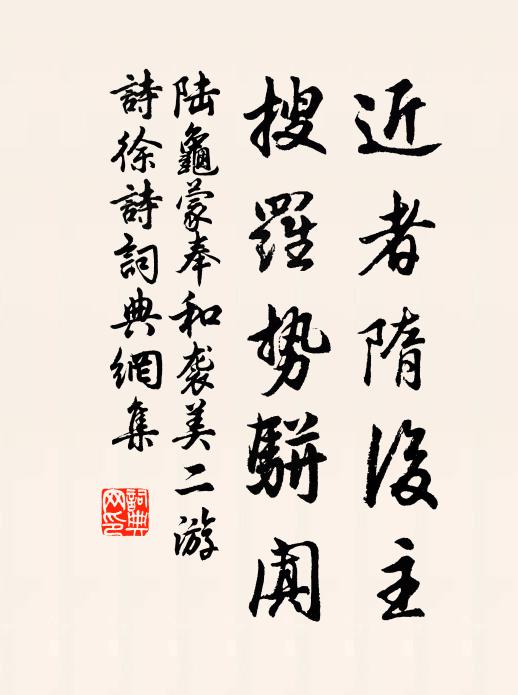 近者隋後主
搜羅勢駢闐
陸龜蒙奉和袭美二游
詩徐詩詞典網集
詞典网印